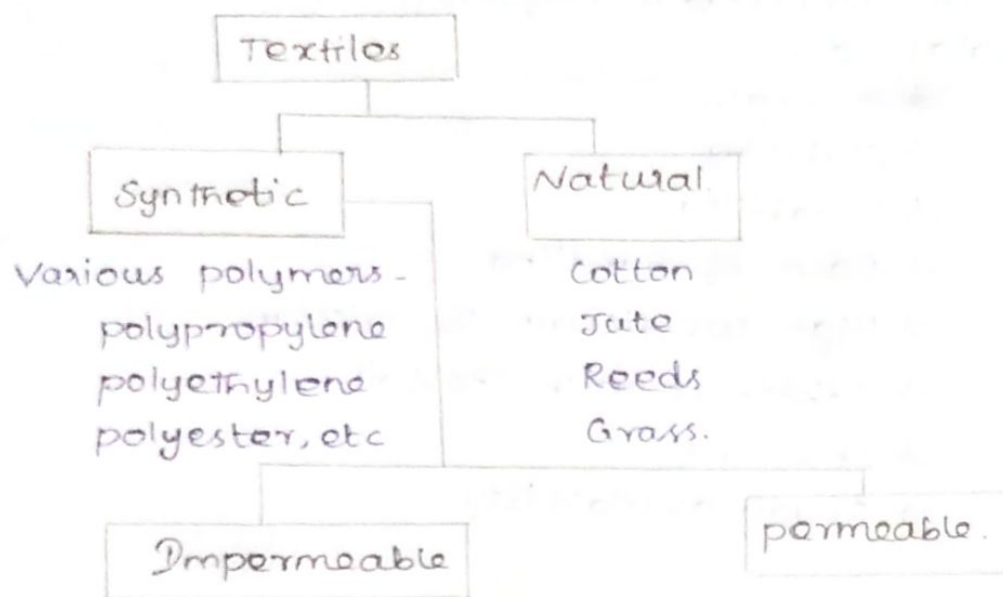 Textiles
Synthetic
Natural.
Various polymers-
polypropylene
polyethylene
polyester, etc
Cotton
Jute
Reeds
Grass.
Impermeable
permeable.